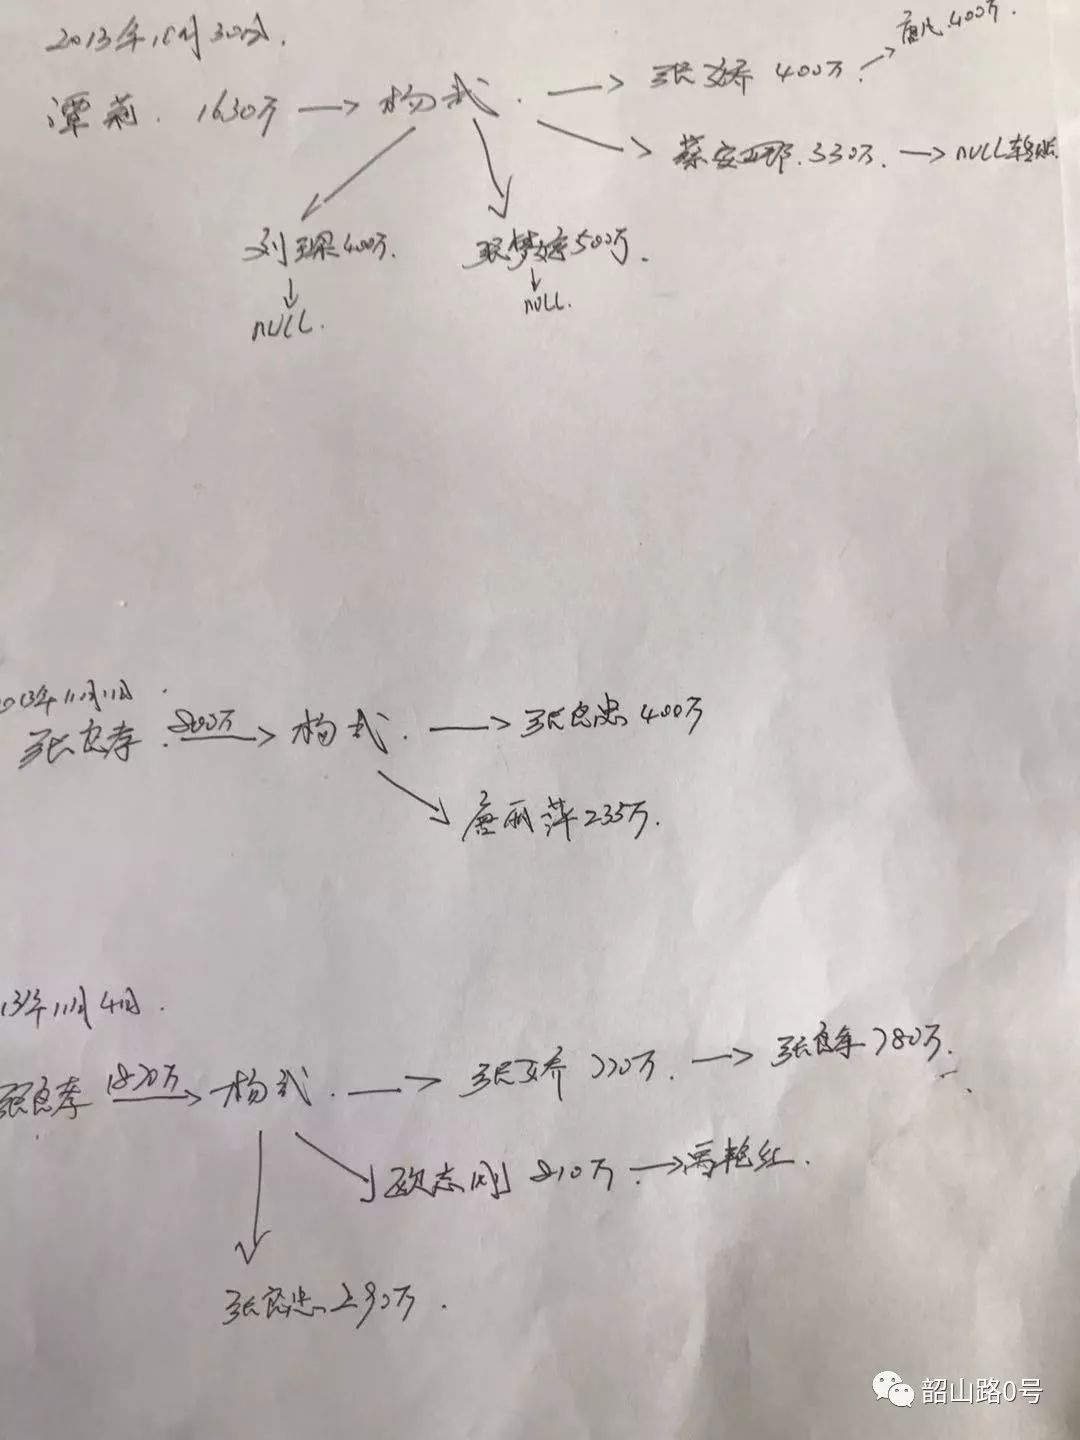 2013年10月30日.
谭莉. 1630万 → 杨武. → 张文乔 400万. → 唐凡.400万.
→ 蔡安那. 330万. → NULL转账.
刘琛400万. 张梦婷500万.
↓ ↓
NULL. NULL.
2013年11月11日.
张良孝. 800万 → 杨武. → 张良忠 400万
唐丽萍235万.
13年11月4日.
张良孝 1870万 → 杨武. → 张文乔 770万. → 张良孝 780万.
欧志刚 810万. → 高艳红.
张良忠290万.
韶山路0号